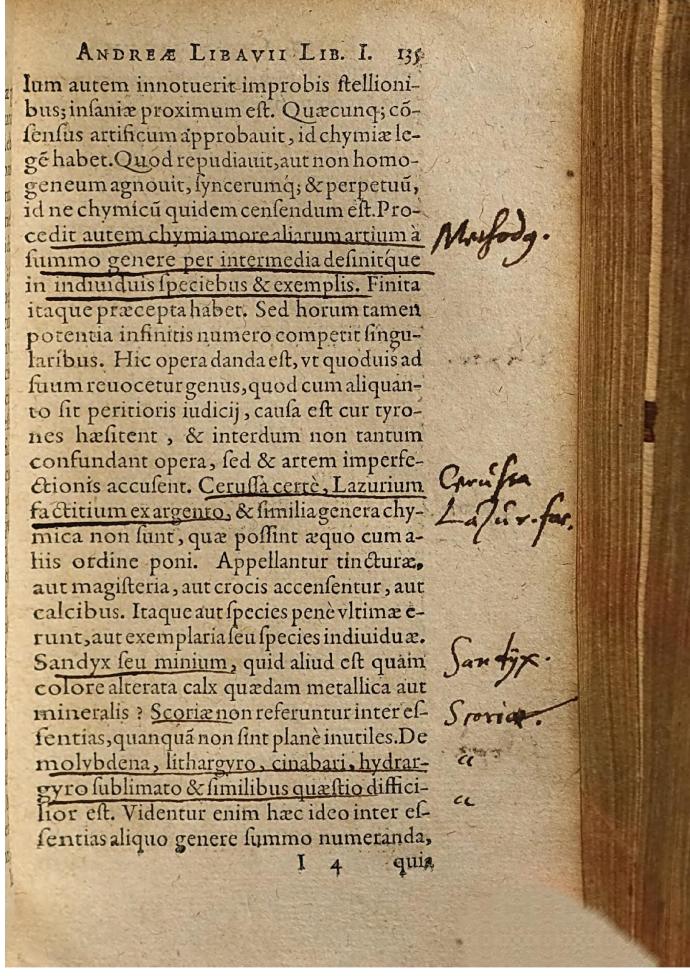 ANDREÆ LIBAVII LIB. I. 135
Ium autem innotuerit improbis ſtellioni-
bus; inſaniæ proximum eſt. Quæcunq; cō-
ſenſus artificum approbauit, id chymiæ le-
gē habet. Quod repudiauit, aut non homo-
geneum agnouit, ſyncerumq́; & perpetuū,
id ne chymicū quidem cenſendum eſt. Pro-
cedit autem chymia more aliarum artium à
ſummo genere per intermedia definitque
in indiuiduis ſpeciebus & exemplis. Finita
itaque præcepta habet. Sed horum tamen
potentia infinitis numero competit ſingu-
laribus. Hic opera danda eſt, vt quoduis ad
ſuum reuocetur genus, quod cum aliquan-
to ſit peritioris iudicij, cauſa eſt cur tyro-
nes hæſitent, & interdum non tantum
confundant opera, ſed & artem imperfe-
ctionis accuſent. Ceruſſa certè, Lazurium
factitium ex argento, & ſimilia genera chy-
mica non ſunt, quæ poſſint æquo cum a-
liis ordine poni. Appellantur tincturæ,
aut magiſteria, aut crocis accenſentur, aut
calcibus. Itaque aut ſpecies penè vltimæ e-
runt, aut exemplaria ſeu ſpecies indiuiduæ.
Sandyx ſeu minium, quid aliud eſt quàm
colore alterata calx quædam metallica aut
mineralis? Scoriæ non referuntur inter eſ-
ſentias, quanquā non ſint planè inutiles. De
molybdena, lithargyro, cinabari, hydrar-
gyro ſublimato & ſimilibus quæſtio diffici-
lior eſt. Videntur enim hæc ideo inter eſ-
ſentias aliquo genere ſummo numeranda,
I 4 quia
Methodꝯ.
Ceruſſa
Laſur. fac.
Sandÿx.
Scoriæ.